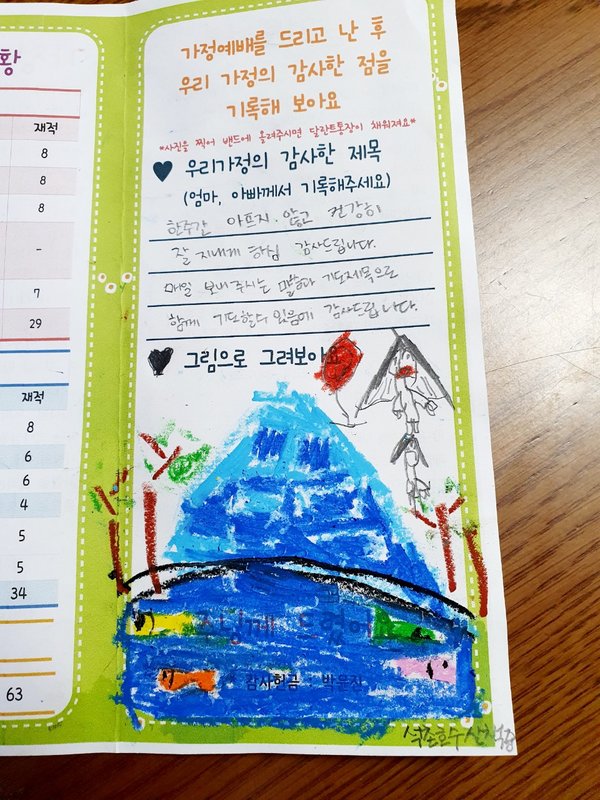 황
재적
8
8
8
-
7
29
재적
8
6
6
4
5
5
34
63
가정예배를 드리고 난 후
우리 가정의 감사한 점을
기록해 보아요
*사진을 찍어 밴드에 올려주시면 달란트통장이 채워져요*
우리가정의 감사한 제목
(엄마, 아빠께서 기록해주세요)
한주간 아프지 않고 건강히
잘 지내게 하심 감사드립니다.
매일 보내 주시는 말씀과 기도제목으로
함께 기도할수 있음에 감사드립니다.
그림으로 그려보아요
주님께 드렸어
감사헌금 : 박윤진
석촌호수 산책중